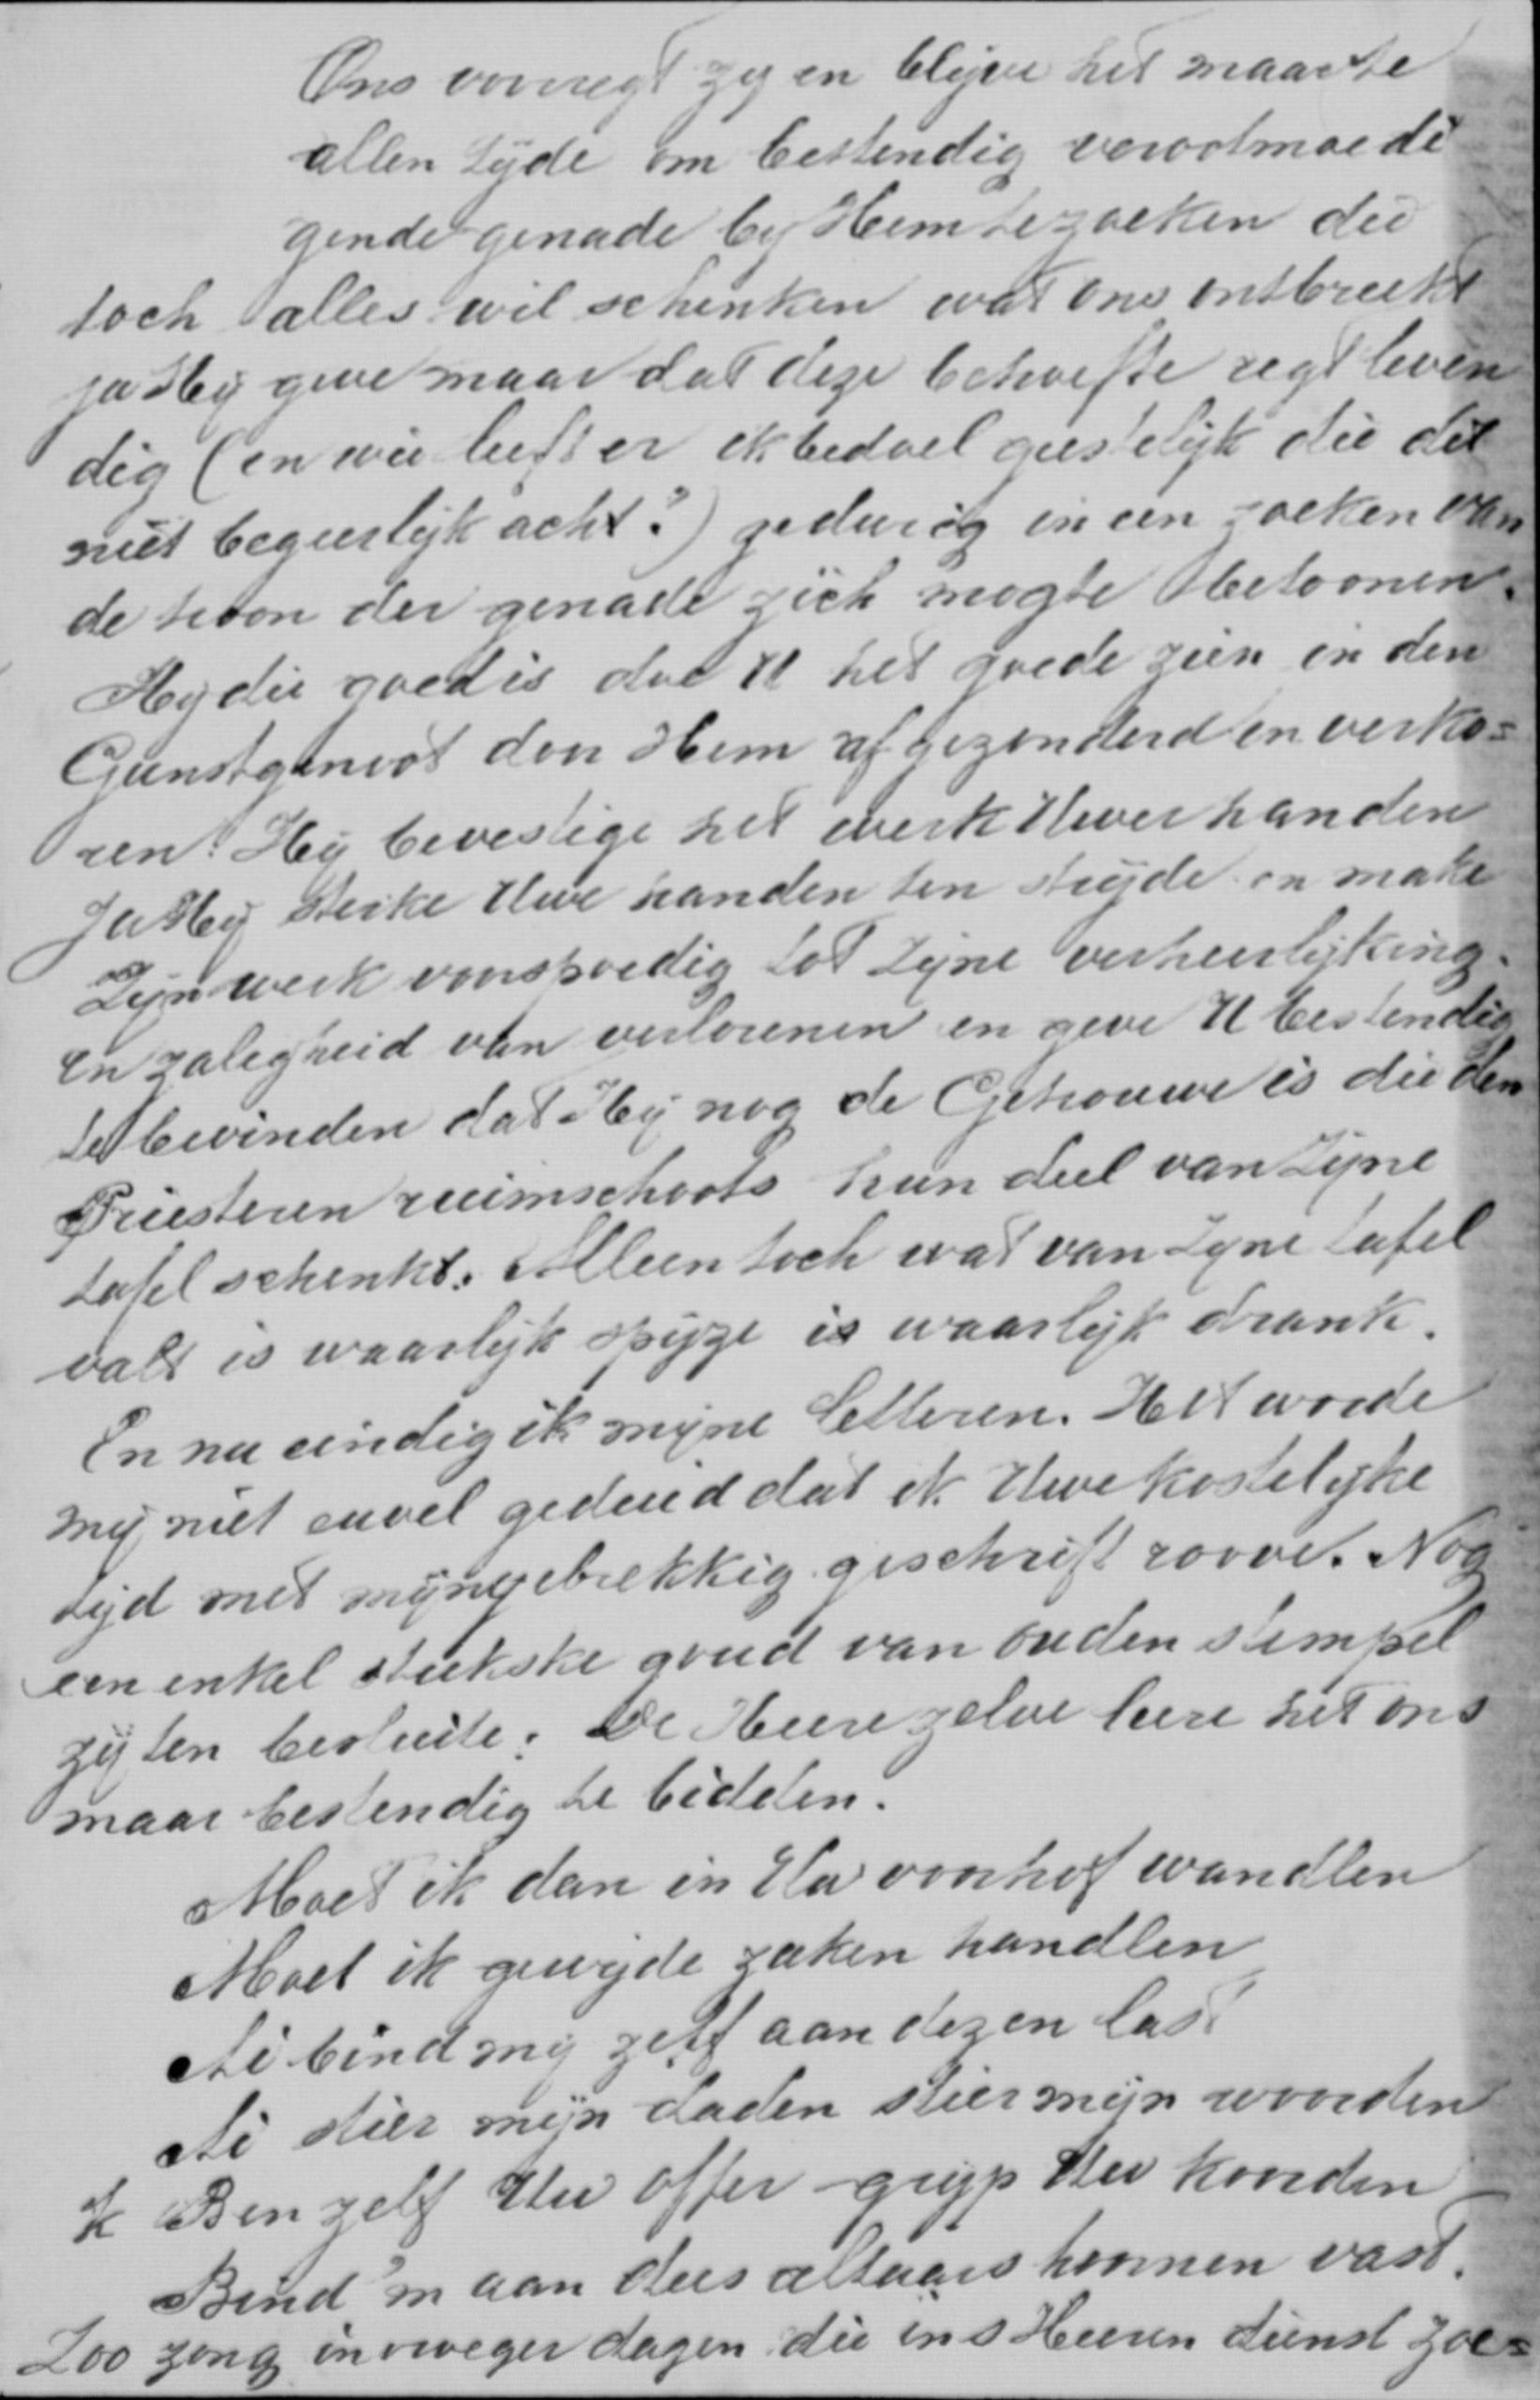 Ons voorregt zy en blijve het maar te
allen tijde om bestendig verootmoedi
gende genade by Hem te zoeken die
toch alles wil schenken wat ons ontbreekt
ja Hij geve maar dat deze behoefte regt leven
dig (en wie leeft er ik bedoel geestelijk die dit
niet begeerlijk acht?) gedurig in een zoeken van
de troon der genade zich mogte betoonen.
Hy die goed is doe U het goede zien in den
Gunstgenoot don Hem afgezonderd en verko=
ren. Hij bevestige het werk Uwer handen
Ja Hij sterke Uwe handen ten strijde en make
Zijn werk voorspoedig tot Zijne verheerlijking.
en zaligheid van verlorenen en geve U bestendig
te bevinden dat Hij nog de Getrouwe is die den
Priesteren ruimschoots hun deel van Zijne
tafel schenkt. Alleen toch wat van Zyne tafel
valt is waarlijk spijze is waarlijk drank.
En nu eindig ik mijne letteren. Het worde
mij niet euvel geduid dat ik Uwe kostelijke
tijd met mijn gebrekkig geschrift roove. Nog
een enkel stukske goud van ouden stempel
zij ten besluite: De Heere zelve leere het ons
maar bestendig te bidden.
Moet ik dan in Uw voorhof wandlen
Moet ik gewijde zaken handlen
Ai bind my zelf aan dezen last
Ai stier mijn daden stier mijn woorden
K Ben zelf Uw offer grijp Uw koorden
Bind 'm aan des altaars hoornen vast.
Zoo zong in vroeger dagen die in s Heeren dienst zoe=